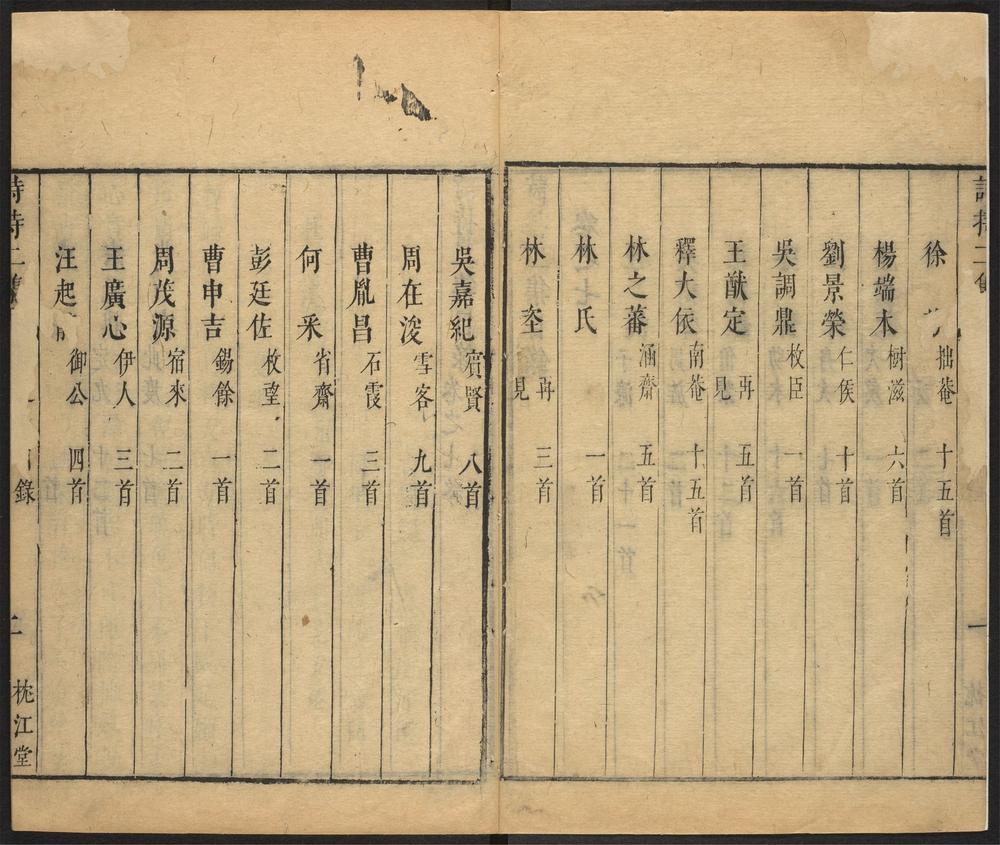 徐 拙菴 十五首
楊端木 樹滋 六首
劉景榮 仁侯 十首
吳調鼎 枚臣 一首
王猷定 再見 五首
釋大依 南菴 十五首
林之蕃 涵齋 五首
林氏 一首
林坴 再見 三首
一
吳嘉紀 賓賢 八首
周在浚 雪客 九首
曹胤昌 石霞 三首
何采 省齋 一首
彭廷佐 枚望 二首
曹申吉 錫餘 一首
周茂源 宿來 二首
王廣心 伊人 三首
汪起 御公 四首
詩持二集 錄 二 枕江堂